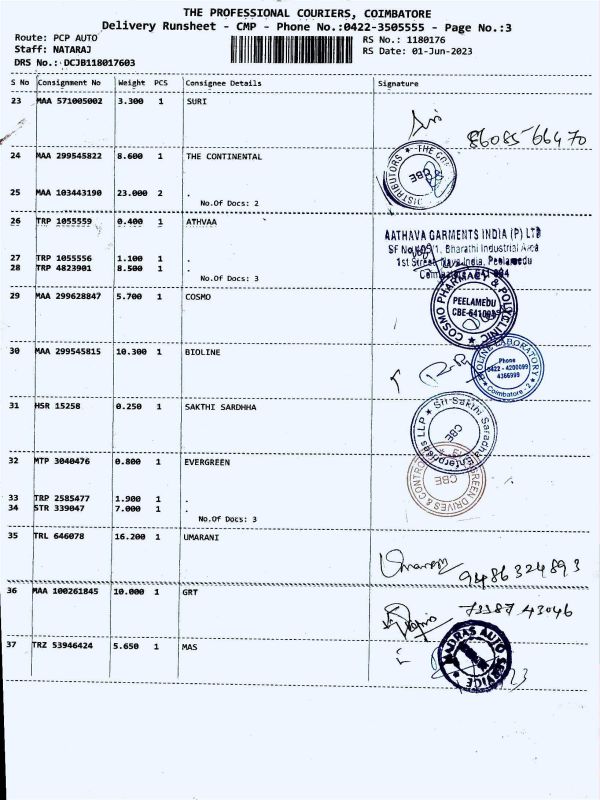 THE PROFESSIONAL COURIERS, COIMBATORE
Delivery Runsheet - CMP - Phone No.:0422-3505555 - Page No.:3
Route: PCP AUTO
Staff: NATARAJ
DRS No.: DCJB118017603
RS No.: 1180176
RS Date: 01-Jun-2023
S No Consignment No Weight PCS Consignee Details Signature
23 MAA 571005002 3.300 1 SURI
86085 66470
24 MAA 299545822 8.600 1 THE CONTINENTAL
DISTRIBUTORS ★ THE CO
CBE
25 MAA 103443190 23.000 2 .
No.Of Docs: 2
26 TRP 1055559 0.400 1 ATHVAA
AATHAVA GARMENTS INDIA (P) LTD
SF No 1, Bharathi Industrial Area
1st Street, India, Peelamedu
27 TRP 1055556 1.100 1 .
28 TRP 4823901 8.500 1 .
No.Of Docs: 3
29 MAA 299628847 5.700 1 COSMO
COSMO PHARMACY & POLYCLINIC ★
PEELAMEDU
30 MAA 299545815 10.300 1 BIOLINE
BIOLINE LABORATORY
Phone
0422 - 4200099
4366999
Coimbatore - 2
31 HSR 15258 0.250 1 SAKTHI SARDHHA
Sri Sakthi Saradha Enterprises LLP ★
CBE
32 MTP 3040476 0.800 1 EVERGREEN
GREEN DRIVES & CONTRO
CBE
33 TRP 2585477 1.900 1 .
34 STR 339047 7.000 1 .
No.Of Docs: 3
35 TRL 646078 16.200 1 UMARANI
Umarani 9486324893
36 MAA 100261845 10.000 1 GRT
73387 43046
37 TRZ 53946424 5.650 1 MAS
MADRAS AUTO SERVICE